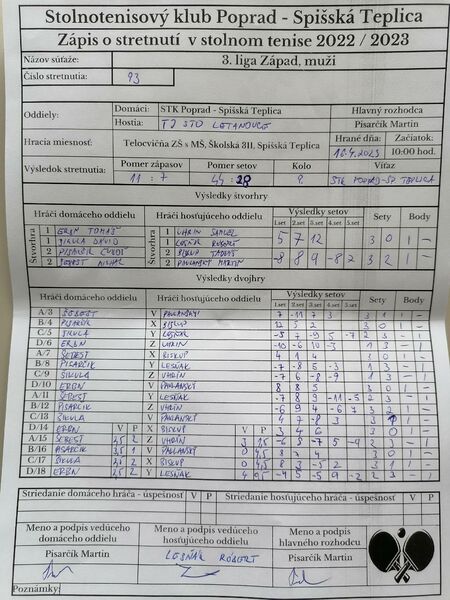 Stolnotenisový klub Poprad - Spišská Teplica
Zápis o stretnutí v stolnom tenise 2022 / 2023
Názov súťaže: 3. liga Západ, muži
Číslo stretnutia: 93
Oddiely: Domáci: STK Poprad - Spišská Teplica Hlavný rozhodca
Hostia: TJ STO LETANOVCE Pisarčík Martin
Hracia miesnosť: Telocvičňa ZŠ s MŠ, Školská 311, Spišská Teplica Hrané dňa: Začiatok:
16.4.2023 10:00 hod.
Výsledok stretnutia: Pomer zápasov Pomer setov Kolo Víťaz
11 : 7 44 : 28 9. STK POPRAD-SP. TEPLICA
Výsledky štvorhry
Hráči domáceho oddielu Hráči hosťujúceho oddielu Výsledky setov Sety Body
1.set 2.set 3.set 4.set 5.set
Štvorhra 1 ERBN TOMÁŠ 1 UHRIN SAMUEL 5 7 12 3 0 1 -
1 ŠIKULA DÁVID 1 LESŇÁK RÓBERT
Štvorhra 2 PISARČÍK 2 BISKUP TADEÁŠ -8 8 9 -8 2 3 2 1 -
2 ŠEBEST MICHAL 2 PAVLANSKÝ MARTIN
Výsledky dvojhry
Hráči domáceho oddielu Hráči hosťujúceho oddielu Výsledky setov Sety Body
1.set 2.set 3.set 4.set 5.set
A/3 ŠEBEST V PAVLANSKÝ 7 -11 7 3 3 1 1 -
B/4 PISARČÍK X BISKUP 12 5 2 3 0 1 -
C/5 ŠIKULA Y LESŇÁK
D/6 ERBN Z UHRIN -10 -6 10 -3 1 3 - 1
A/7 ŠEBEST X BISKUP 4 1 4 3 0 1 -
B/8 PISARČÍK Y LESŇÁK -7 -8 5 -3 1 3 - 1
C/9 ŠIKULA Z UHRIN -7 6 -8 -9 1 3 - 1
D/10 ERBN V PAVLANSKÝ 8 8 5 3 0 1 -
A/11 ŠEBEST Y LESŇÁK -7 8 9 -11 -5 2 3 - 1
B/12 PISARČÍK Z UHRIN -6 9 4 -6 7 3 2 1 -
C/13 ŠIKULA V PAVLANSKÝ 4 7 -8 3 3 1 1 -
D/14 ERBN V P X BISKUP V P 3 4 6 3 0 1 -
A/15 ŠEBEST Z UHRIN
B/16 PISARČÍK V PAVLANSKÝ 8 7 4 3 0 1 -
C/17 ŠIKULA X BISKUP 8 3 -5 2 3 1 1 -
D/18 ERBN Y LESŇÁK
Striedanie domáceho hráča - úspešnosť V P Striedanie hosťujúceho hráča - úspešnosť V P
Meno a podpis vedúceho domáceho oddielu
Meno a podpis vedúceho hosťujúceho oddielu
Meno a podpis hlavného rozhodcu
Pisarčík Martin LESŇÁK RÓBERT Pisarčík Martin
Poznámky: